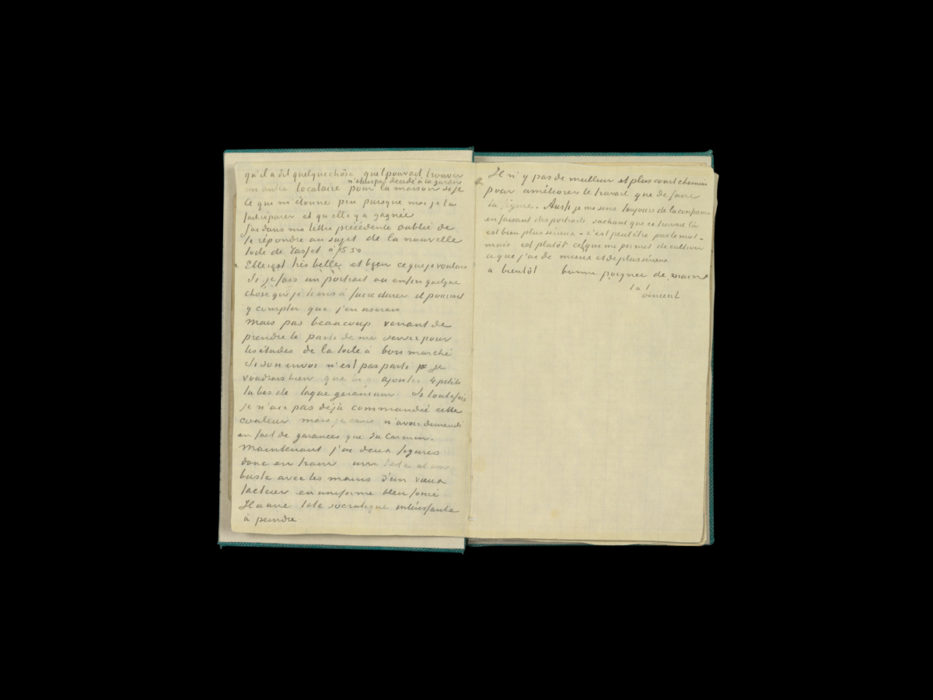 qu'il a dit quelque chose que s'il pouvait trouver
un autre locataire n'étais pas décidé à la garder pour la maison si je
Ce que m'étonne peu puisque moi je l'ai
fait réparer et qu'elle y a gagné
J'ai dans ma lettre précédente oublié de
te répondre au sujet de la nouvelle
toile de Tasset à 5.50
Elle est très belle et bien ce que je voulais
Si je fais un portrait ou enfin quelque
chose que je tiens à faire durer et pouvoir
y compter que j'en
mais pas beaucoup venant de
prendre le parti de me servir pour
les études de la toile à bon marché
Si son envoi n'est pas parti je
voudrais bien que ajoute 4 petits
tubes de laque géranium. Si toutefois
je n'ai pas déjà commandé cette
couleur mais je n'avoir demandé
en fait de garances que du carmin.
Maintenant j'ai deux figures
donc en train une tête et un
buste avec les mains d'un vieux
facteur en uniforme bleu foncé
Il a une tête socratique intéressante
à peindre
Il n'y pas de meilleur et plus court chemin
pour améliorer le travail que de faire
la figure. Aussi je me sens toujours de la confiance
en faisant des portraits sachant que ce travail là
est bien plus sérieux – c'est peut être pas le mot –
mais est plutôt ce que me permet de cultiver
ce que j'ai de mieux et de plus sérieux
à bientôt bonne poignée de main
t. à t.
Vincent